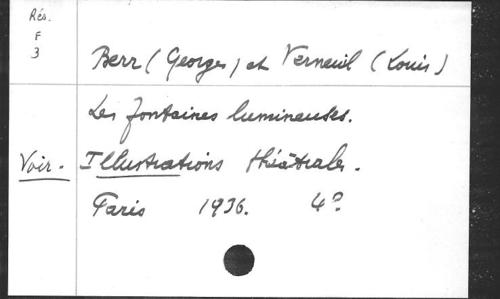 Rés.
F
3
Berr (Georges) et Verneuil (Louis)
Les fontaines lumineuses.
Voir. Illustrations théâtrales.
Paris 1936. 4º